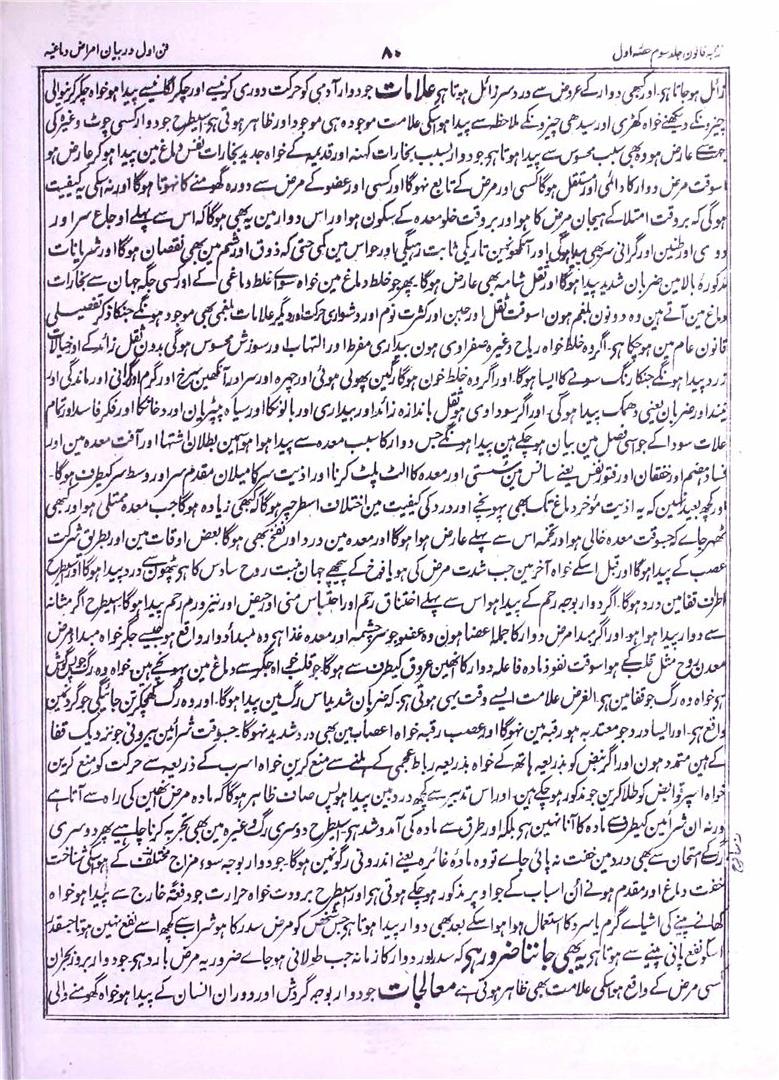 ترجمہ قانون جلد سوم حصہ اول ۸۰ فن اول در بیان امراض دماغیہ
زائل ہو جاتا ہی۔ اور کبھی دوار کے عروض سے درد سر زائل ہوتا ہی علامات جو دوار آدمی کو حرکت دوری کرنیسے اور چکر لگانیسے پیدا ہو خواہ چکر کرنیوالی
چیزونکے دیکھنے خواہ کھڑی اور سیدھی چیزونکے ملاحظہ سے پیدا ہو اسکی علامت موجودہ ہی موجود اور ظاہر ہوتی ہی اسیطرح جو دوار کسی چوٹ وغیرہ کی
عارض ہو وہ بھی سبب محسوس سے پیدا ہوتا ہی جو دوار بسبب بخارات کہنہ اور قدیمہ کے خواہ جدید بخارات نفس دماغ مین پیدا ہو کر عارض ہو
اسوقت مرض دوار کا دائمی اور مستقل ہوگا کسی اور مرض کے تابع نہوگا اور کسی اور عضو کے مرض سے دورہ گھومنے کا نہوتا ہوگا اور نہ اسکی یہ کیفیت
ہوگی کہ بر وقت امتلا کے ہیجان مرض کا ہو اور بر وقت خلو معدہ کے سکون ہو اور اس دوار مین یہ بھی ہوگا کہ اس سے پہلے اوجاع سر اور
دوی اور طنین اور گرانی سر بھی پیدا ہوگی اور آنکھونمین تاریکی ثابت رہیگی اور حواس مین کمی حتی کہ ذوق اور شم مین بھی نقصان ہوگا اور شریانات
مذکورۂ بالا مین ضربان شدید پیدا ہوگا اور ثقل شامہ بھی عارض ہوگا۔ پھر جو خلط دماغ مین خواہ سوای خلط دماغی کے اور کسی جگہ جہان سے بخارات
دماغ مین آتے ہین وہ دونون بلغم ہون اسوقت ثقل اور جبن اور کثرت نوم اور دشواری حرکت اور دیگر علامات بلغمی بھی موجود ہونگے جنکا ذکر تفصیلی
قانون عام مین ہو چکا ہی۔ اگر وہ خلط خواہ ریاح وغیرہ صفراوی ہون بیداری مفرط اور التہاب اور سوزش محسوس ہوگی بدون ثقل زائد کے اور خیالات
زرد پیدا ہونگے جنکا رنگ سونے کا ایسا ہوگا۔ اور اگر وہ خلط خون ہوگا رگین پھولی ہوئی اور چہرہ اور سر اور آنکھین سرخ اور گرم اور گرانی اور ماندگی اور
نیند اور ضربان یعنی دھمک پیدا ہوگی۔ اور اگر سوداوی ہو ثقل باندازہ زائد اور بیداری اور بالونکا اور سیاہ پتھریان اور دخانکا اور فکر فاسد اور تمام
علامات سودا کے جو اسی فصل مین بیان ہو چکے ہین پیدا ہونگے جس دوار کا سبب معدہ سے پیدا ہوا ہو اسمین بطلان اشتہا اور آفت معدہ مین اور
فساد ہضم اور خفقان اور فتور نفس یعنے سانس مین سستی اور معدہ کا الٹ پلٹ کرنا اور اذیت سر کا میلان مقدم سر اور وسط سر کیطرف ہوگا۔
اور کچھ بعید نہین کہ یہ اذیت مؤخر دماغ تک بھی پہونچے اور درد کی کیفیت مین اختلاف اسطرحپر ہوگا کہ کبھی زیادہ ہوگا جب معدہ ممتلی ہو اور کبھی
ٹھہر جاے گا جسوقت معدہ خالی ہو اور تخمہ اس سے پہلے عارض ہوا ہوگا اور معدہ مین درد اور نفخ بھی ہوگا بعض اوقات مین اور بطریق شرکت
عصب کے پیدا ہوگا اور قبل اسکے خواہ آخر مین جب شدت مرض کی ہو یافوخ کے پیچھے جہان منبت زوج سادس کا ہی درد پیدا ہوگا اور اسیطرح
اطراف قفا مین درد ہوگا۔ اگر دوار بوجہ رحم کے پیدا ہو اس سے پہلے اختناق رحم اور احتباس منی اور حیض اور نیز ورم رحم پیدا ہوگا اسیطرح اگر مثانہ
سے دوار پیدا ہوا ہو۔ اور اگر مبدا مرض دوار کا جملہ اعضا ہون وہ عضو جو سرچشمہ اور معدہ غذا ہی وہ مبدأ دوار واقع ہو جیسے جگر خواہ مبدا مرض
معدن روح مثل قلب کے ہو اسوقت نفوذ مادہ فاعلہ دوار کا انھین عروق کیطرف سے ہوگا جو قلب خواہ جگر سے دماغ مین پہونچے ہین خواہ وہ رگ جو پس گوش
ہی خواہ وہ رگ جو قفا مین ہی۔ الغرض علامت ایسے وقت یہی ہوتی ہی۔ کہ ضربان شدید اس رگ مین پیدا ہوگا۔ اور وہ رگ کھچکر تن جائیگی جو گردنمین
واقع ہی۔ اور ایسا درد جو معتد بہ ہو رقبہ مین نہوگا اور عصب رقبہ خواہ اعصاب مین بھی درد شدید نہوگا۔ جسوقت شرائین بیرونی جو نزدیک قفا
کے ہین متمدد ہون اور اگر نبض کو بذریعہ ہاتھ کے خواہ بذریعہ رباط عجمی کے ہلنے سے منع کرین خواہ اسرب کے ذریعہ سے حرکت کو منع کرین
خواہ اسپر قوابض کو طلا کرین جو مذکور ہو چکے ہین۔ اور اس تدبیر سے کچھ درد مین پیدا ہو پس صاف ظاہر ہوگا کہ مادہ مرض انھین کی راہ سے آتا ہے
ورنہ ان شرائین کیطرف مادہ کا آنا نہین ہی بلکہ اور طرق سے مادہ کی آمد و شد ہی۔ اسیطرح دوسری رگ وغیرہ مین بھی تجربہ کرنا چاہیے پھر دوسری
رگ کے امتحان سے بھی درد مین خفت نہ پائی جاے تو وہ مادہ غائرہ یعنے اندرونی رگونمین ہوگا۔ جو دوار بوجہ سوء مزاج مختلف کے ہو اسکی شناخت
خفت دماغ اور مقدم ہونے ان اسباب کے جو اوپر مذکور ہو چکے ہوتی ہی اور اسیطرح برودت خواہ حرارت جو دفعۃً خارج سے پیدا ہو خواہ
کھانے پینے کی اشیاے گرم یا سرد کا استعمال ہوا ہو اسکے بعد بھی دوار پیدا ہوتا ہی جس شخص کو مرض سدر کا ہو شراب سے کچھ اسے نفع نہین ہوتا جسقدر
اسکو نفع پانی پینے سے ہوتا ہی یہ بھی جاننا ضرور ہی کہ سدر اور دوار کا زمانہ جب طولانی ہو جاے ضرور یہ مرض بارد ہی۔ جو دوار بروز بحران
کسی مرض کے واقع ہو اسکی علامت بھی ظاہر ہوتی ہے معالجات جو دوار بوجہ گردش اور دوران انسان کے پیدا ہو خواہ گھومنے والی